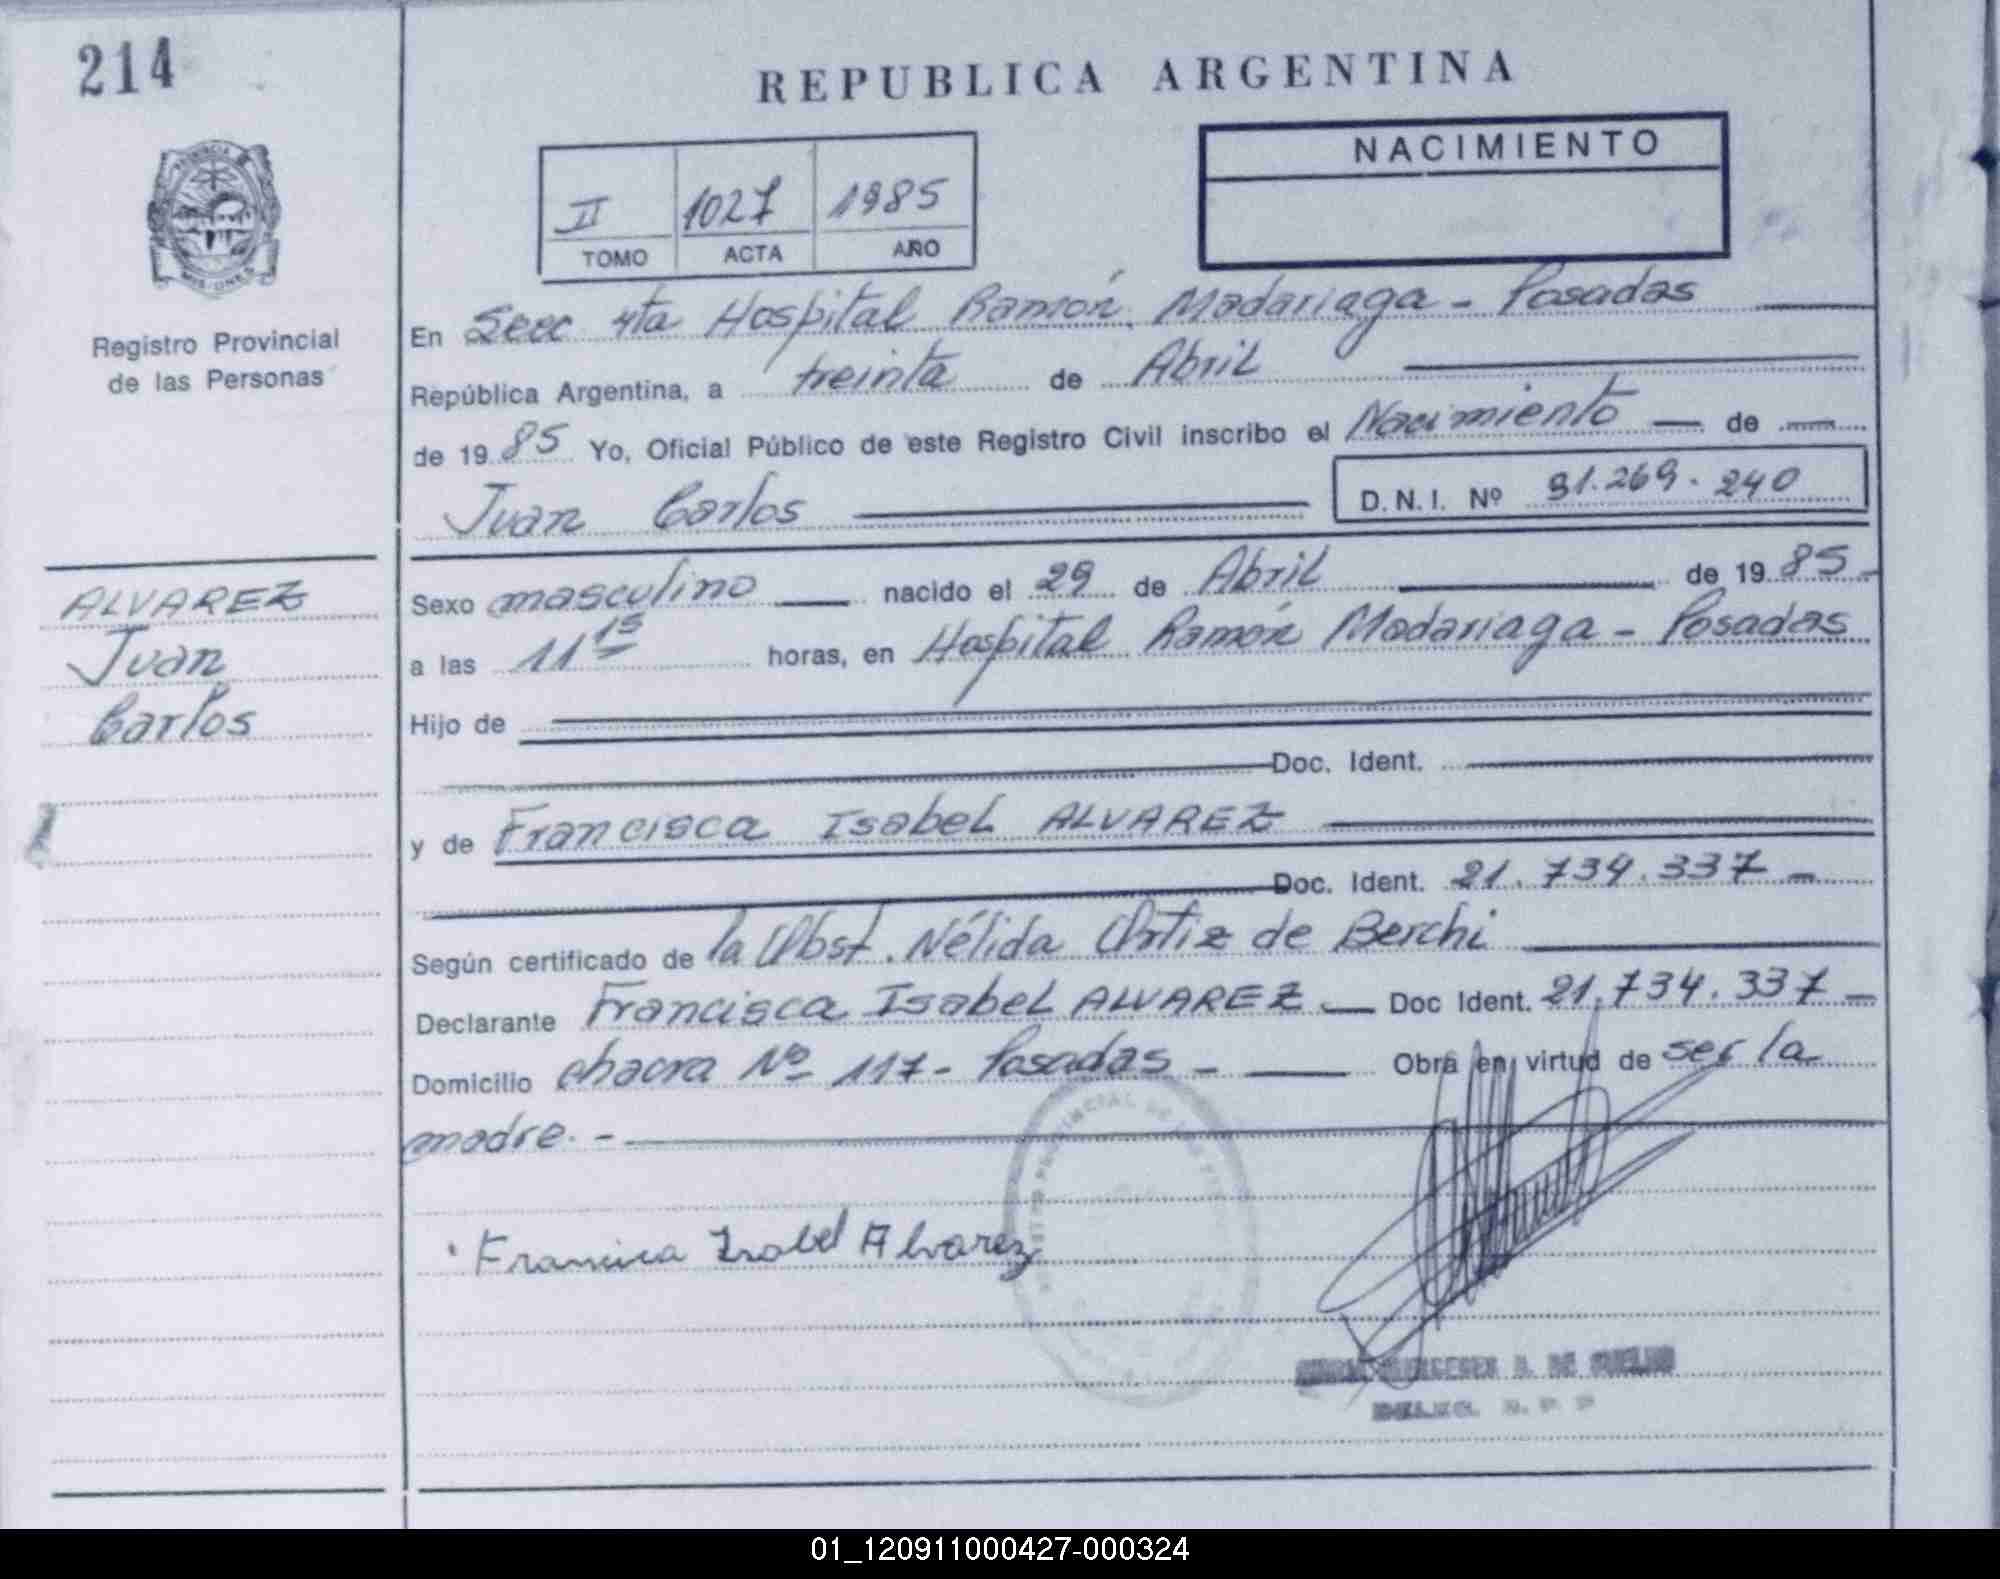 214
REPUBLICA ARGENTINA
NACIMIENTO
II 1027 1985
TOMO ACTA AÑO
PROVINCIA DE
MISIONES
Registro Provincial
de las Personas
En Secc 4ta Hospital Ramón Madariaga - Posadas
República Argentina, a treinta de Abril
de 1985 Yo, Oficial Público de este Registro Civil inscribo el Nacimiento de
Juan Carlos
D.N.I. Nº 31.269.240
ALVAREZ
Juan
Carlos
Sexo masculino nacido el 29 de Abril de 1985
a las 11 15 horas, en Hospital Ramón Madariaga - Posadas
Hijo de
Doc. Ident.
y de Francisca Isabel ALVAREZ
Doc. Ident. 21.734.337 -
Según certificado de la Obst. Nélida Ortiz de Berchi
Declarante Francisca Isabel ALVAREZ Doc Ident. 21.734.337 -
Domicilio chacra Nº 117 - Posadas - Obra en virtud de ser la
madre. -
REGISTRO PROVINCIAL DE LAS
Francisca Isabel Alvarez
01_120911000427-000324